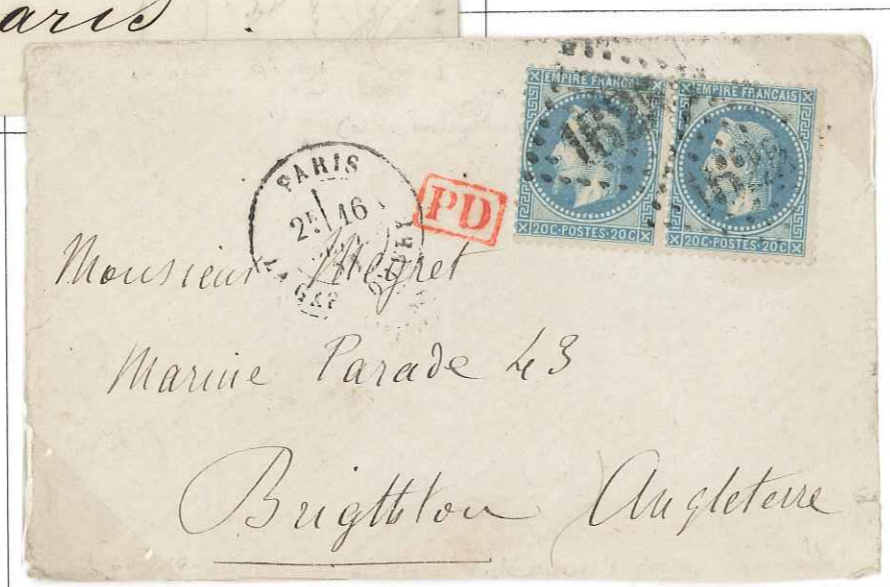 aris
EMPIRE FRANÇAIS
20C·POSTES·20C
EMPIRE FRANÇAIS
20C·POSTES·20C
PARIS
25 16
PD
Monsieur Megret
Marine Parade 43
Brigthton Angleterre